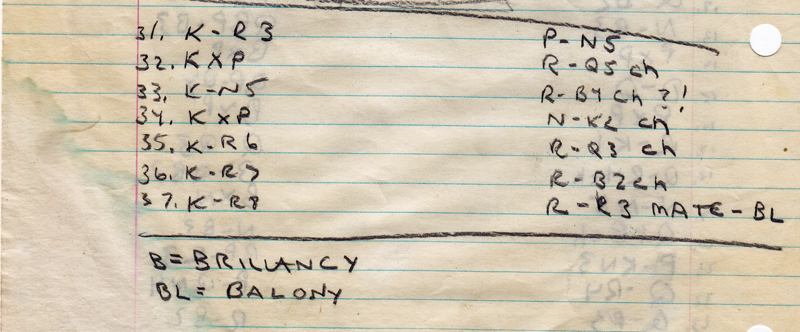 31. K-R3 P-N5
32. KXP R-Q5 ch
33. K-N5 R-B4 ch?!
34. KXP N-K2 ch
35. K-R6 R-Q3 ch
36. K-R7 R-B2ch
37. K-R8 R-R3 MATE-BL
B=BRILLANCY
BL=BALONY